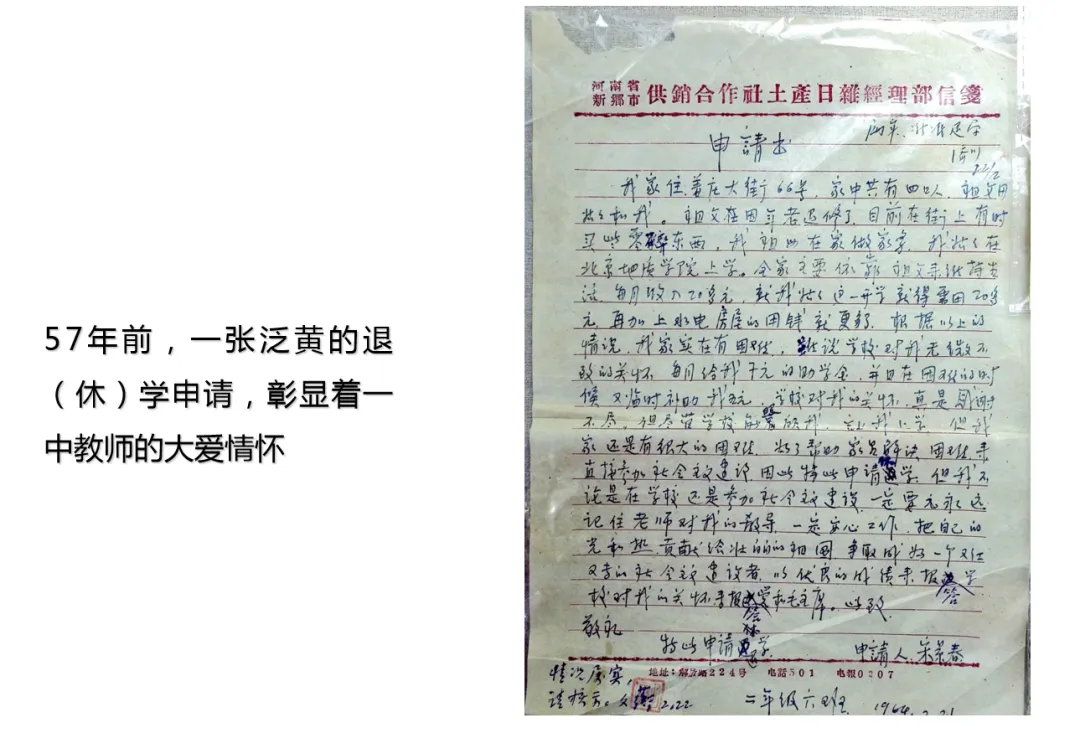 57年前，一张泛黄的退
（休）学申请，彰显着一
中教师的大爱情怀
河南省
新鄉市 供銷合作社土產日雜經理部信箋
申請书
22/2
我家住姜庄大街66号，家中共有四口人，祖父母
姐姐和我。祖父在因年老退休了，目前在街上有时
买些零碎东西，我祖母在家做家务，我姐姐在
北京地质学院上学。全家主要依靠祖父来维持生
活，每月收入20多元，就我姐姐这一开学就得需用20多
元，再加上水电房屋的用钱就更多。根据以上的
情况，我家实在有困难，虽说学校对我无微不
致的关怀，每月给我7元的助学金，并且在困难的时
候又临时补助我五元，学校对我的关怀，真是感谢
不尽，但尽管学校
我上学，但我
家还是有很大的困难，为了帮助家员解决困难，来
直接参加社会主义建设，因此特此申请休学，但我不
论是在学校还是参加社会主义建设，一定要永远
记住老师对我的教导，一定安心工作，把自己的
光和热，贡献给壮丽的祖国，争取成为一个又红
又专的社会主义建设者，以优良的成绩来报答学
校对我的关怀来报答党和毛主席。此致
敬礼
特此申请休学。 申請人 宋景春
地址：解放路224号 电話501 电報0307
情况属实，
请核示。 2.22
二年级六班 1964.2.21